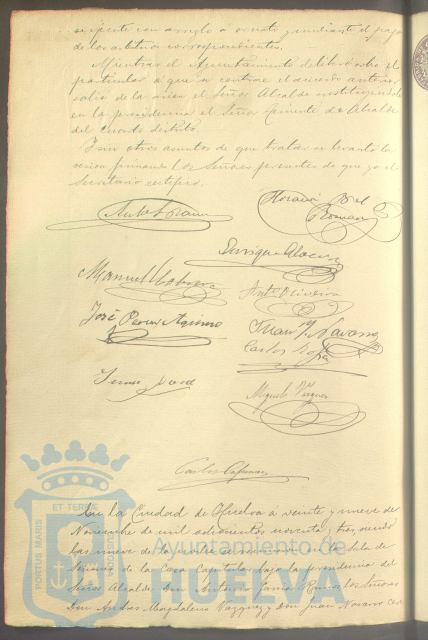 siguiente con arreglo á ornato y mediante el pago
de los arbitrios correspondientes.
Mientras el Ayuntamiento deliberó sobre el
particular á que se contrae el acuerdo anterior
salió de la sesion el Señor Alcalde sustituyendole
en la presidencia el Señor Teniente de Alcalde
del cuarto distrito.
Y sin otros asuntos de que tratar se levantó la
sesion firmando los Señores presentes de que yo el
Secretario certifico.
Horacio Bel
Roman
Enrique
Manuel
Antº Oliveira
José Perez
Juan Navarro
Carlos
Miguel Vazquez
Carlos
PORTUS MARIS ET TERRÆ
Ayuntamiento de
HUELVA
En la Ciudad de Huelva á veinte y nueve de
Noviembre de mil ochocientos noventa y tres, siendo
las nueve de la noche se reunieron en la Sala de
Sesiones de la Casa Capitular bajo la presidencia del
Señor Alcalde Don Antonio los Señores
Don Andres Magdaleno Vazquez y Don Juan Navarro